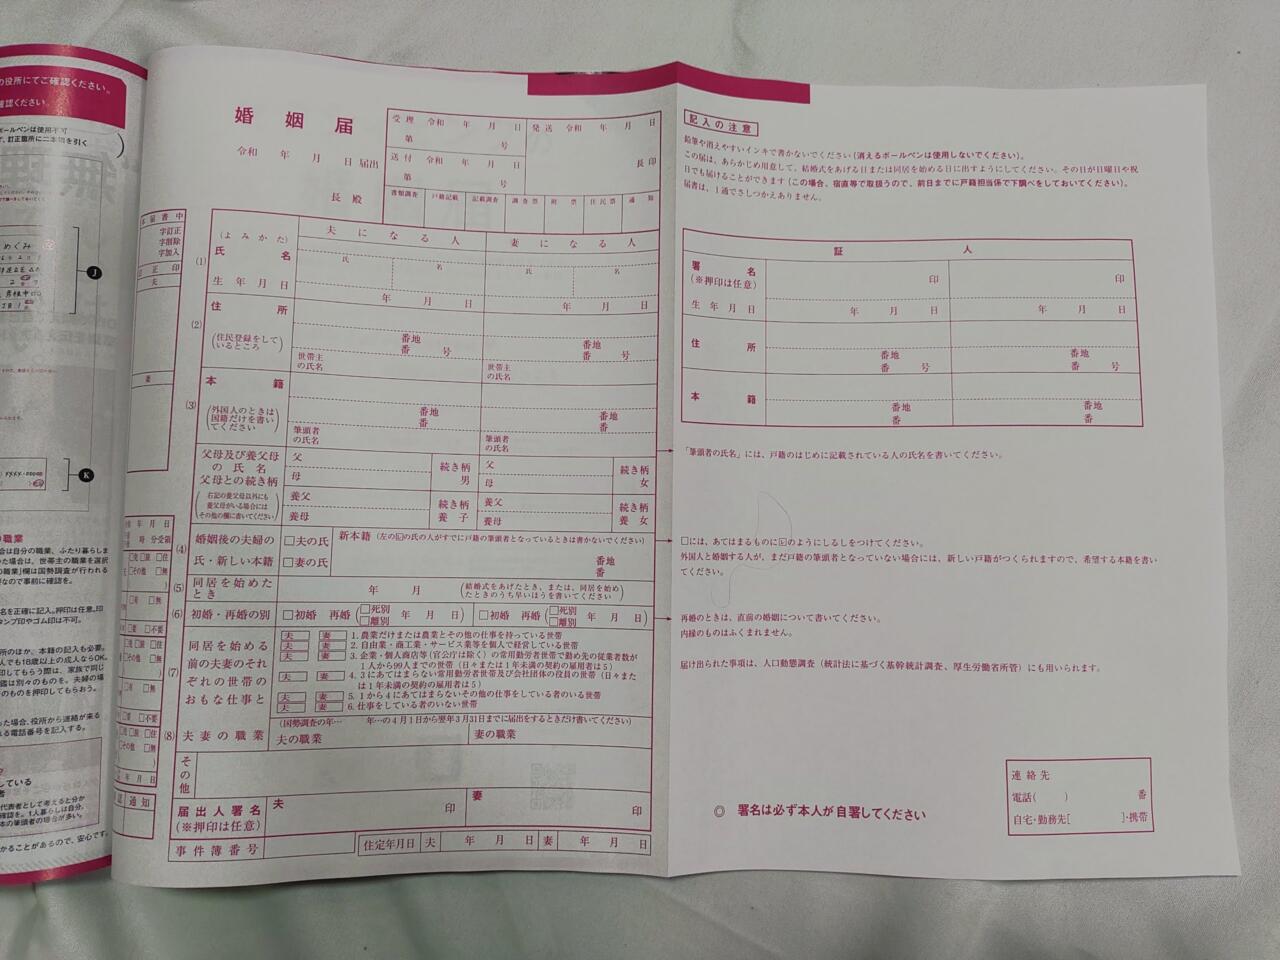 の役所にてご確認ください。
確認ください。
ボールペンは使用不可
訂正箇所に二本線を引く
めぐみ
J
K
XXXX-00000
の職業
名を正確に記入。押印は任意。印
所のほか、本籍の記入も必要。
人でも18歳以上の成人ならOK。
った場合、役所から連絡が来る
る電話番号を記入する。
している
本届書中
字訂正
字削除
字加入
訂正印
夫
妻
通知
婚姻届
令和 年 月 日 届出
長 殿
受理 令和 年 月 日
第 号
送付 令和 年 月 日
第 号
発送 令和 年 月 日
長印
書類調査 戸籍記載 記載調査 調査票 附票 住民票 通知
夫になる人 妻になる人
(1)
(よみかた)
氏 名
氏 名 氏 名
生年月日
年 月 日 年 月 日
(2)
住 所
(住民登録をしているところ)
番地
番 号
番地
番 号
世帯主の氏名
世帯主の氏名
(3)
本 籍
(外国人のときは国籍だけを書いてください)
番地
番
番地
番
筆頭者の氏名
筆頭者の氏名
父母及び養父母の氏名
父母との続き柄
(右記の養父母以外にも養父母がいる場合にはその他の欄に書いてください)
父
母
続き柄
男
父
母
続き柄
女
養父
養母
続き柄
養子
養父
養母
続き柄
養女
(4)
婚姻後の夫婦の氏・新しい本籍
□夫の氏
□妻の氏
新本籍(左の☑の氏の人がすでに戸籍の筆頭者となっているときは書かないでください)
番地
番
(5)
同居を始めたとき
年 月
(結婚式をあげたとき、または、同居を始めたときのうち早いほうを書いてください)
(6)
初婚・再婚の別
□初婚 再婚(□死別 □離別 年 月 日)
□初婚 再婚(□死別 □離別 年 月 日)
(7)
同居を始める前の夫妻のそれぞれの世帯のおもな仕事と
夫 妻 1.農業だけまたは農業とその他の仕事を持っている世帯
夫 妻 2.自由業・商工業・サービス業等を個人で経営している世帯
夫 妻 3.企業・個人商店等(官公庁は除く)の常用勤労者世帯で勤め先の従業者数が1人から99人までの世帯(日々または1年未満の契約の雇用者は5)
夫 妻 4.3にあてはまらない常用勤労者世帯及び会社団体の役員の世帯(日々または1年未満の契約の雇用者は5)
夫 妻 5.1から4にあてはまらないその他の仕事をしている者のいる世帯
夫 妻 6.仕事をしている者のいない世帯
(8)
夫妻の職業
(国勢調査の年… 年…の4月1日から翌年3月31日までに届出をするときだけ書いてください)
夫の職業 妻の職業
その他
届出人署名
(※押印は任意)
夫 印
妻 印
事件簿番号
住定年月日 夫 年 月 日 妻 年 月 日
記入の注意
鉛筆や消えやすいインキで書かないでください(消えるボールペンは使用しないでください)。
この届は、あらかじめ用意して、結婚式をあげる日または同居を始める日に出すようにしてください。その日が日曜日や祝
日でも届けることができます(この場合、宿直等で取扱うので、前日までに戸籍担当係で下調べをしておいてください)。
届書は、1通でさしつかえありません。
証 人
署 名
(※押印は任意)
印 印
生年月日
年 月 日 年 月 日
住 所
番地
番 号
番地
番 号
本 籍
番地
番
番地
番
「筆頭者の氏名」には、戸籍のはじめに記載されている人の氏名を書いてください。
□には、あてはまるものに☑のようにしるしをつけてください。
外国人と婚姻する人が、まだ戸籍の筆頭者となっていない場合には、新しい戸籍がつくられますので、希望する本籍を書い
てください。
再婚のときは、直前の婚姻について書いてください。
内縁のものはふくまれません。
届け出られた事項は、人口動態調査(統計法に基づく基幹統計調査、厚生労働省所管)にも用いられます。
◎ 署名は必ず本人が自署してください
連絡先
電話( ) 番
自宅・勤務先[ ]・携帯